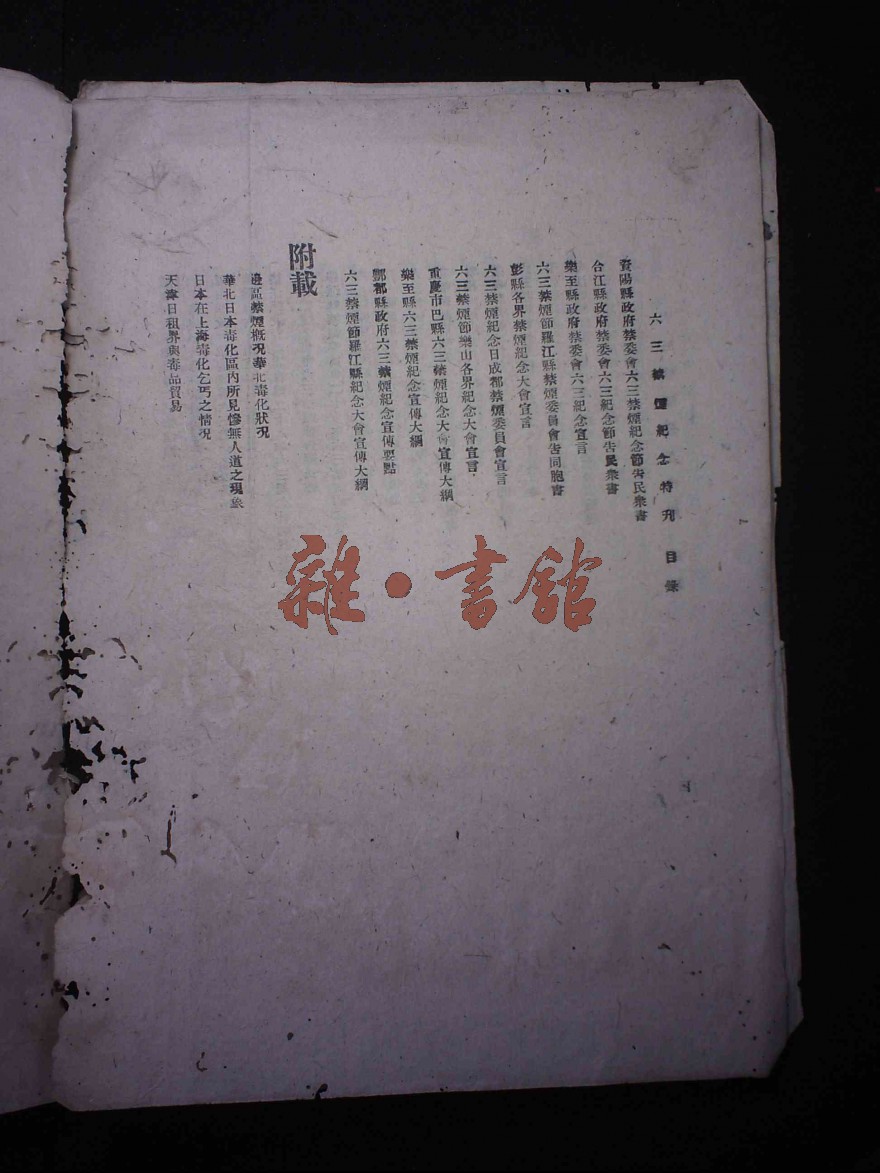 六三禁煙紀念特刊 目錄
資陽縣政府禁委會六三禁煙紀念節告民衆書
合江縣政府禁委會六三紀念節告民衆書
樂至縣政府禁委會六三紀念宣言
六三禁煙節羅江縣禁煙委員會告同胞書
彭縣各界禁煙紀念大會宣言
六三禁煙紀念日成都禁煙委員會宣言
六三禁煙節樂山各界紀念大會宣言
重慶市巴縣六三禁煙紀念大會宣傳大綱
樂至縣六三禁煙紀念宣傳大綱
酆都縣政府六三禁煙紀念宣傳要點
六三禁煙節羅江縣紀念大會宣傳大綱
附載
邊區禁煙概况華北毒化狀况
華北日本毒化區内所見慘無人道之現象
日本在上海毒化乞丐之情况
天津日租界與毒品貿易
雜·書館